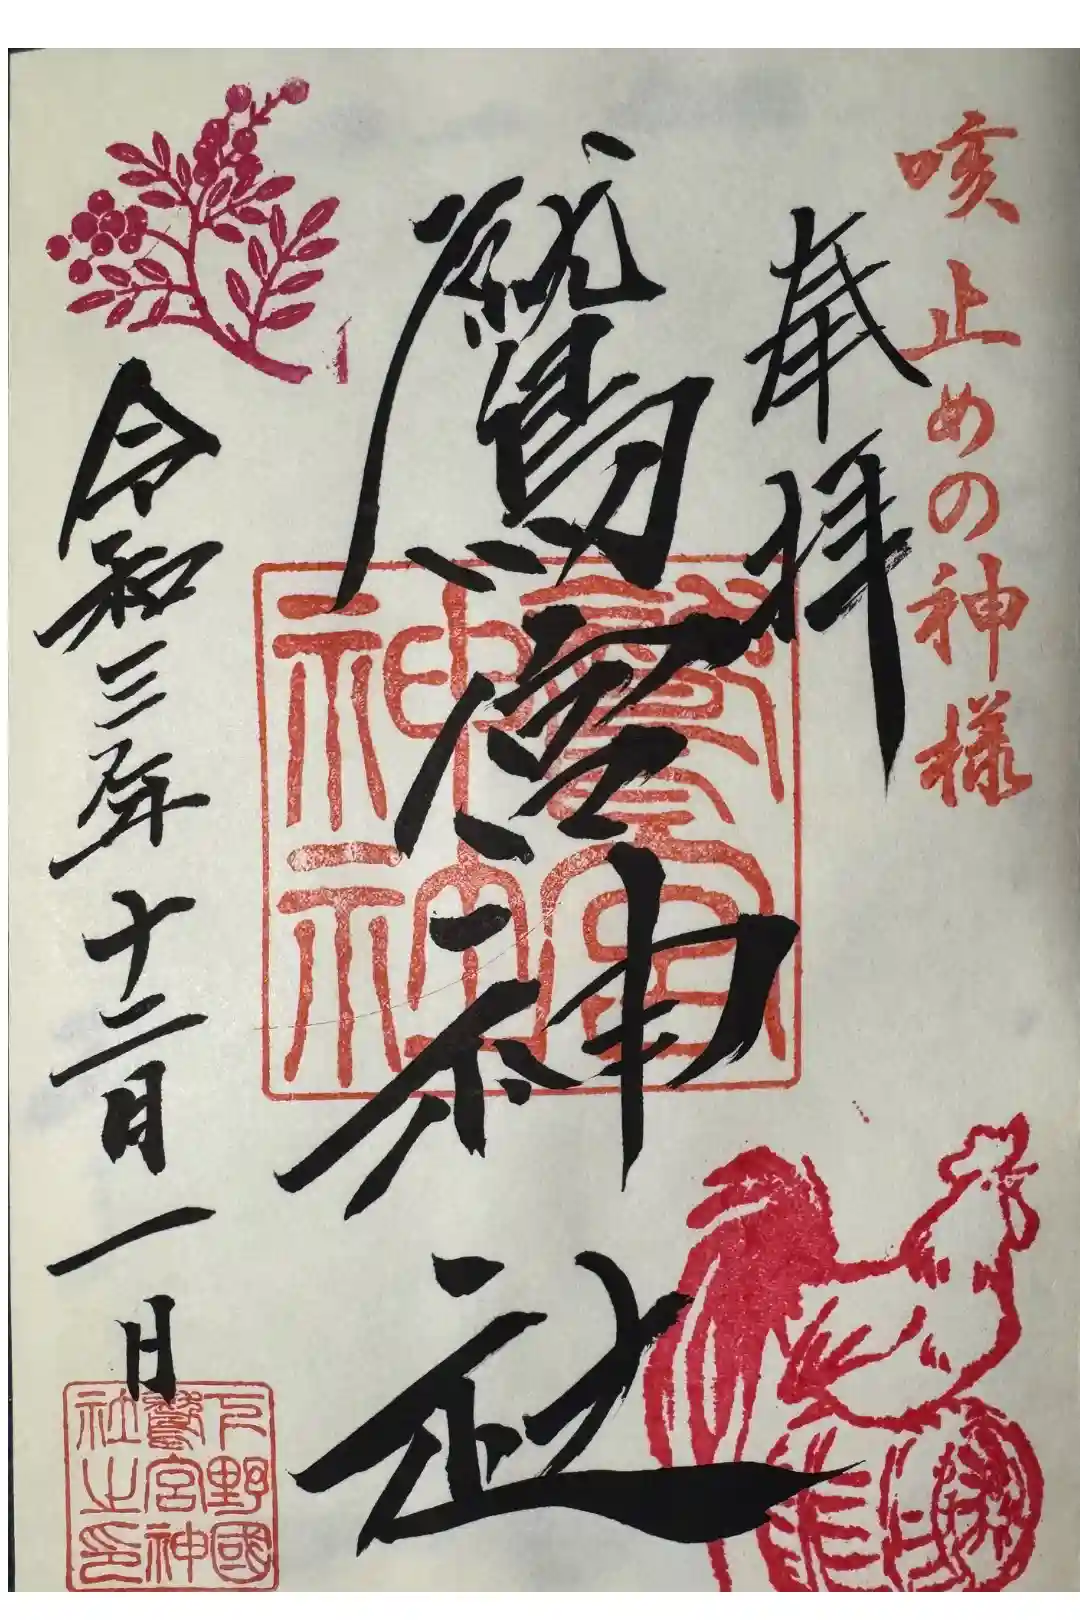 咳止めの神様
奉拝
鷲宮神社
鷲宮
神社
令和三年十二月一日
下野國
鷲宮神
社之印